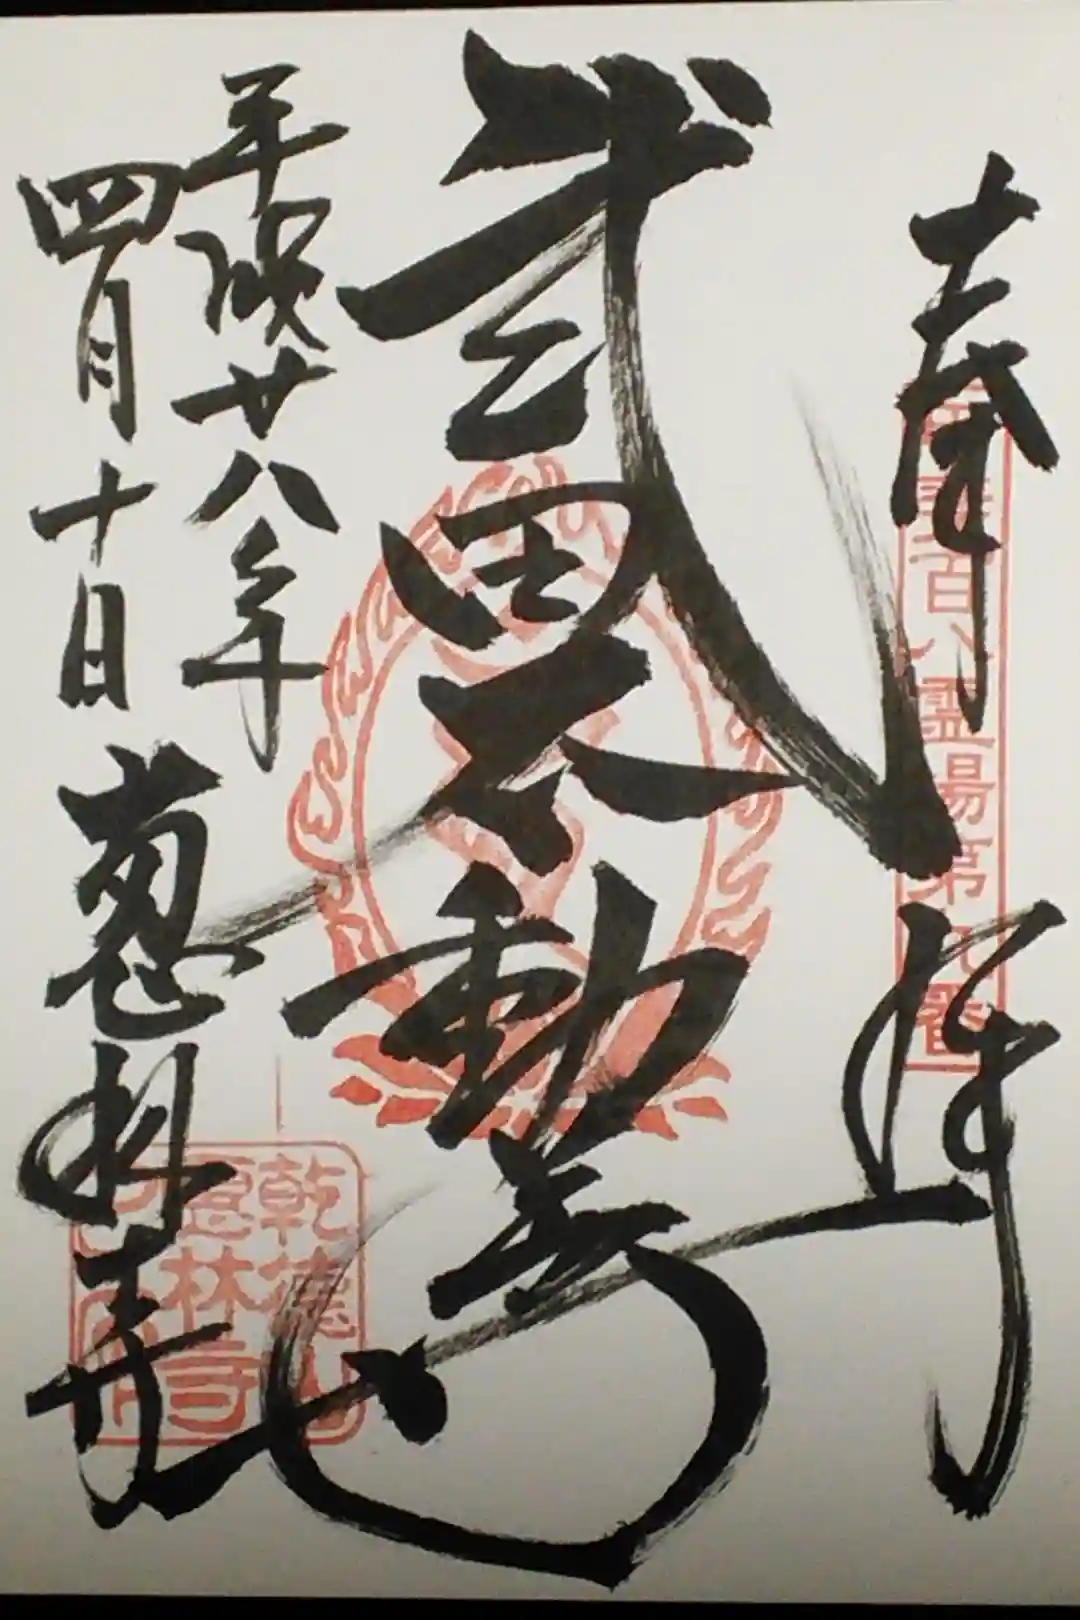 奉拝
甲斐百八霊場第九番
武田不動尊
平成廿八年
四月十日
惠林寺
乾徳山
惠林寺